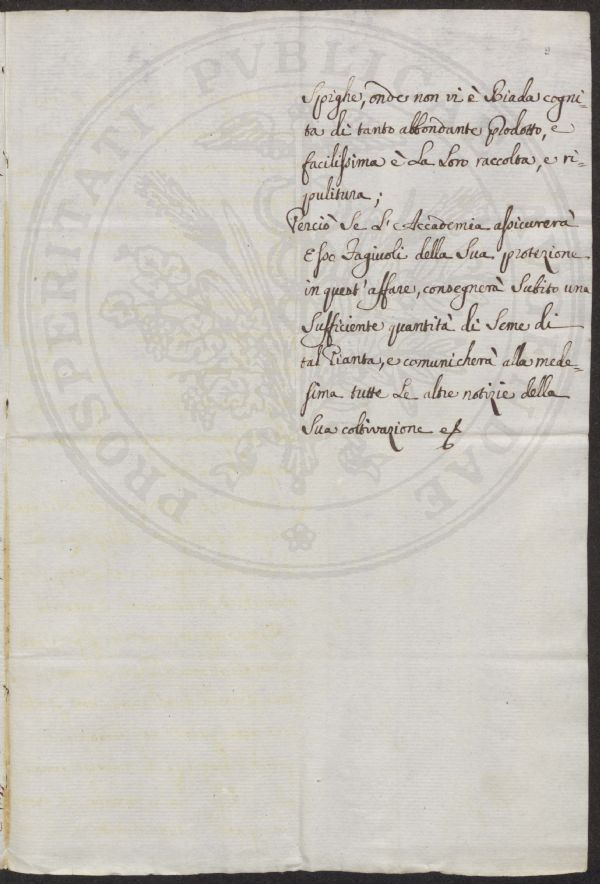 Spighe, onde non vi è Biada cogni=
ta di tanto abbondante Prodotto, e
facilissima è La Loro raccolta, e ri=
pulitura;
Perciò Se L'Accademia assicurerà
Esso Fagiuoli della Sua protezione
in quest'affare, consegnerà Subito una
Sufficiente quantità di Seme di
tal Pianta, e comunicherà alla mede=
sima tutte Le altre notizie della
Sua coltivazione
PROSPERITATI PVBLICAE